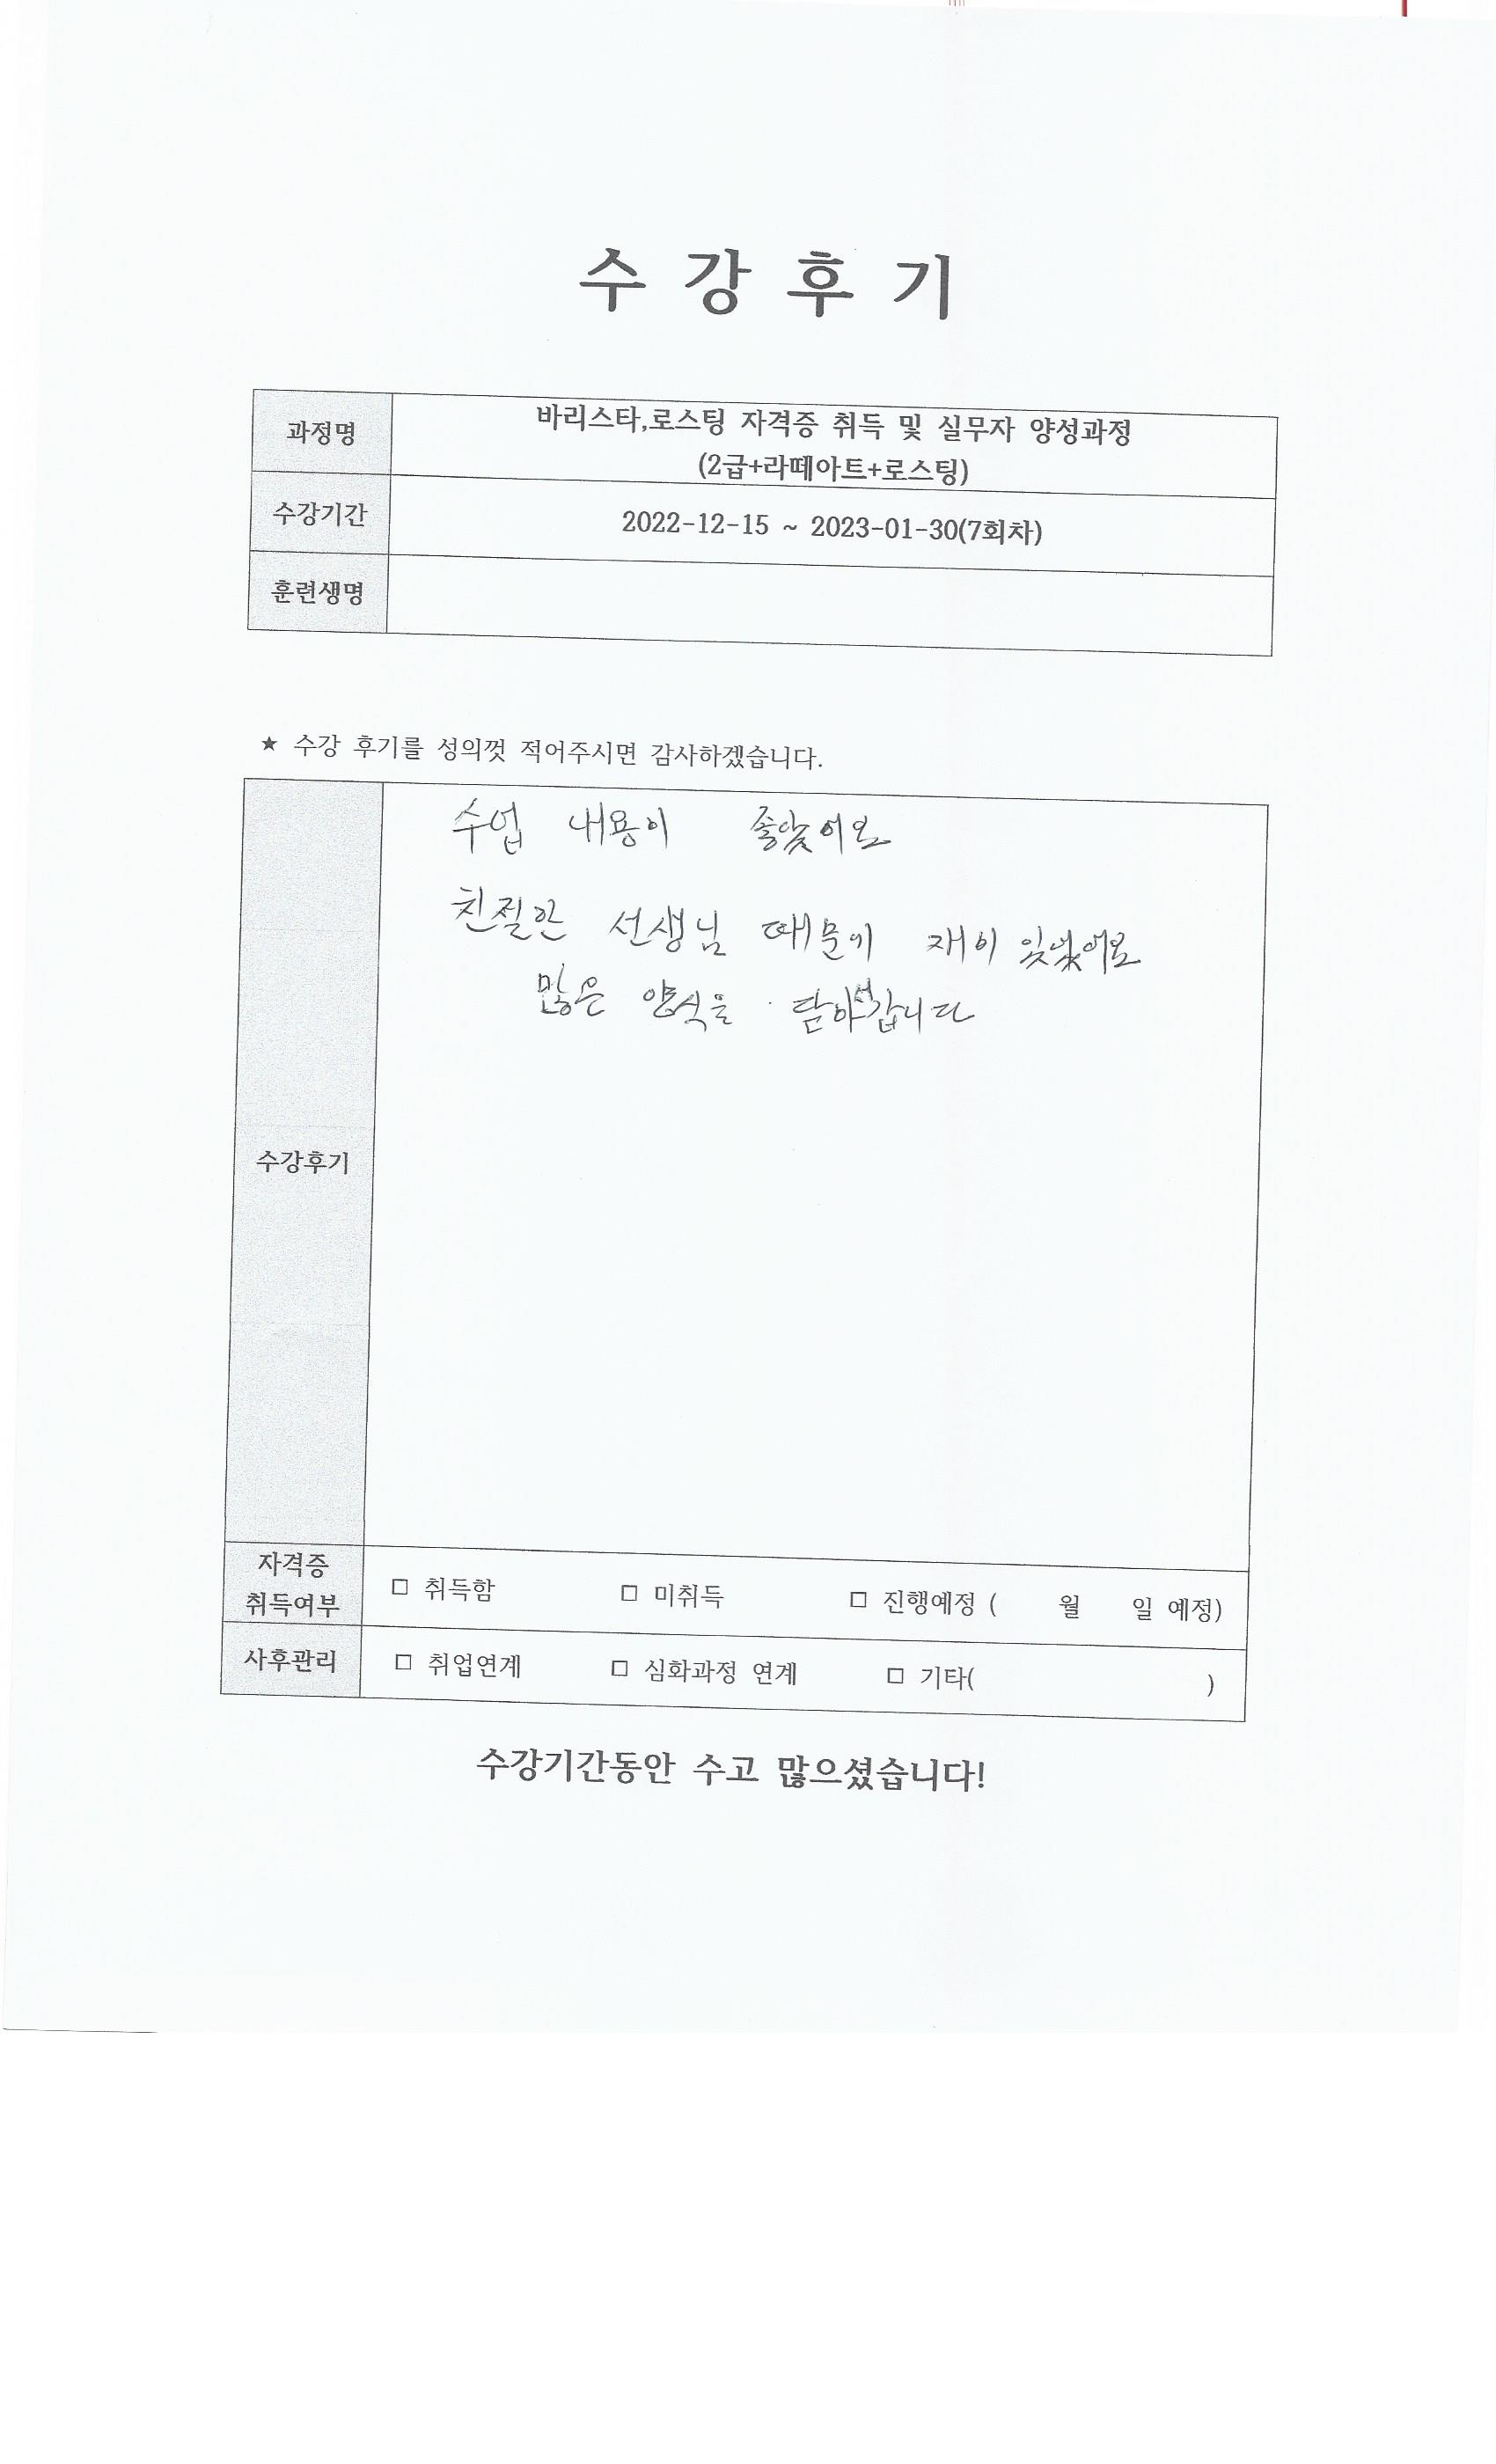 수 강 후 기
과정명
바리스타,로스팅 자격증 취득 및 실무자 양성과정
(2급+라떼아트+로스팅)
수강기간
2022-12-15 ~ 2023-01-30(7회차)
훈련생명
★ 수강 후기를 성의껏 적어주시면 감사하겠습니다.
수강후기
수업 내용이 좋았어요
친절한 선생님 때문에 재미 있었어요
많은 양식을 담아서갑니다
자격증
취득여부
□ 취득함 □ 미취득 □ 진행예정 ( 월 일 예정)
사후관리
□ 취업연계 □ 심화과정 연계 □ 기타( )
수강기간동안 수고 많으셨습니다!